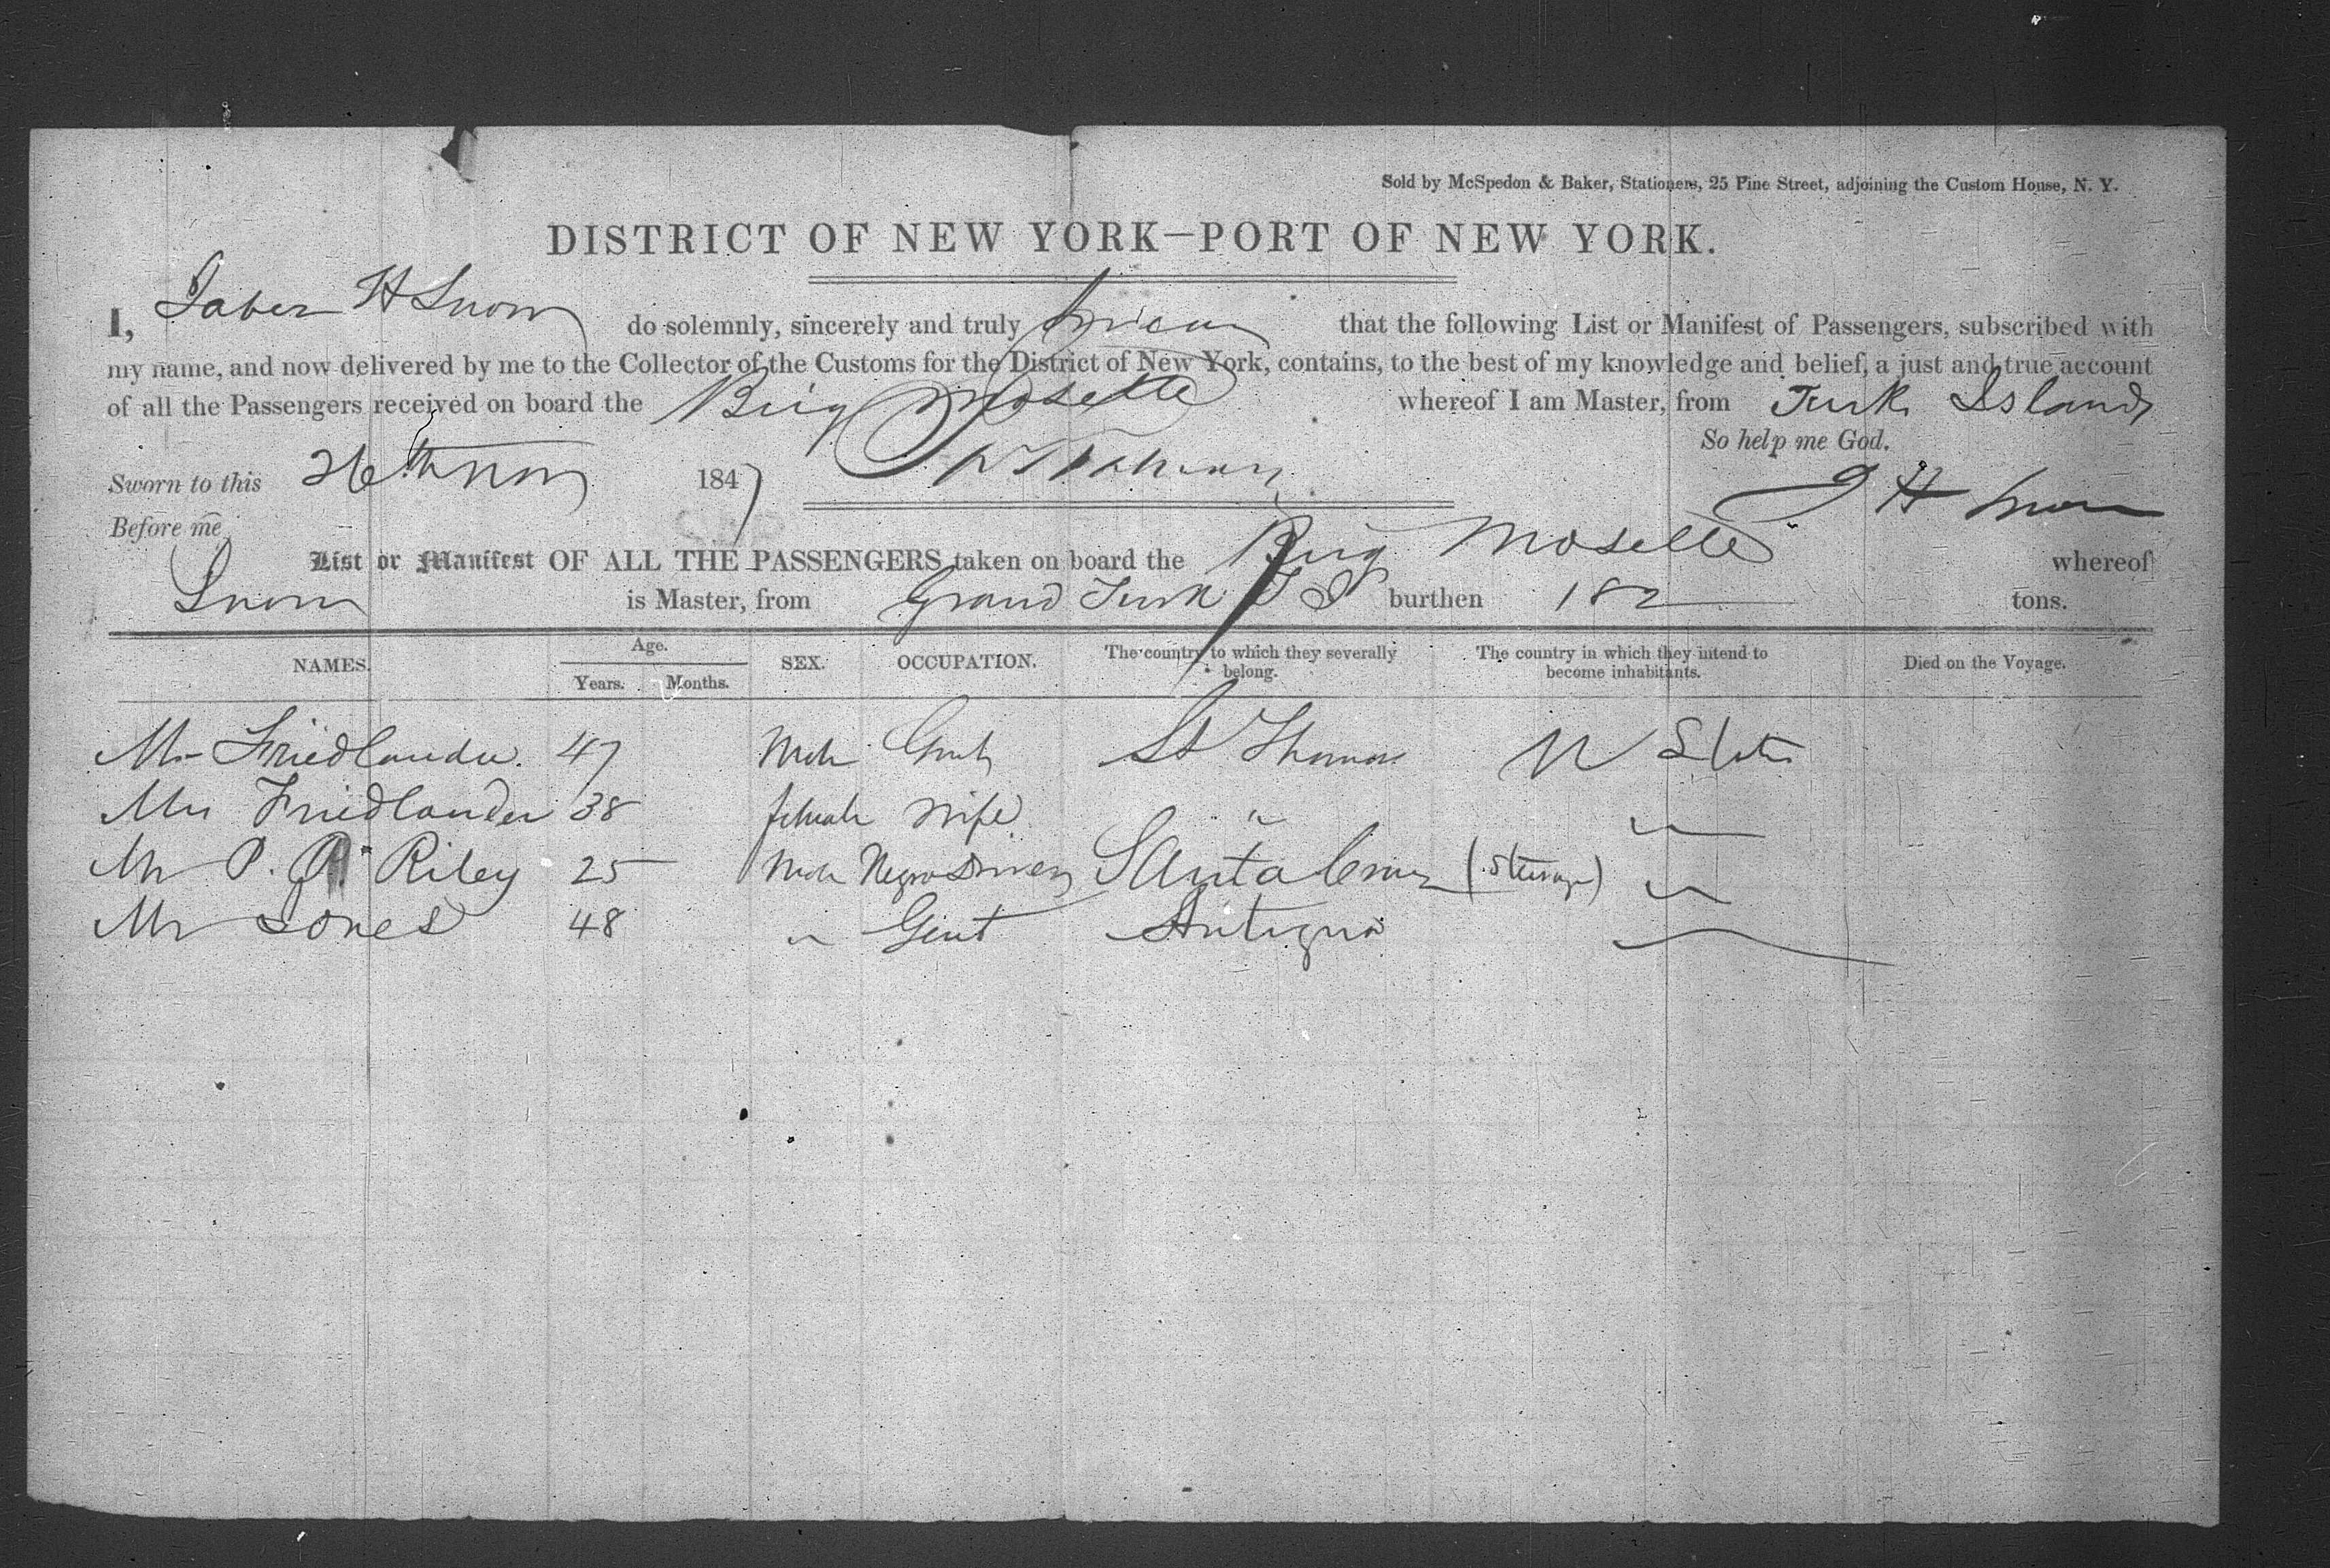 Sold by McSpedon & Baker, Stationers, 25 Pine Street, adjoining the Custom House, N. Y.
DISTRICT OF NEW YORK—PORT OF NEW YORK.
I, Taber H Snow do solemnly, sincerely and truly swear that the following List or Manifest of Passengers, subscribed with
my name, and now delivered by me to the Collector of the Customs for the District of New York, contains, to the best of my knowledge and belief, a just and true account
of all the Passengers received on board the Brig Moselle whereof I am Master, from Turk Island
So help me God.
Sworn to this 26th Nov 1847
T H Snow
Before me
List or Manifest OF ALL THE PASSENGERS taken on board the Brig Moselle whereof
Snow is Master, from Grand Turk T I burthen 182 tons.
NAMES. Age. Years. Months. SEX. OCCUPATION. The country to which they severally belong. The country in which they intend to become inhabitants. Died on the Voyage.
Mr Friedlander. 47 Male Gent St Thomas U States
Mrs Friedlander 38 female Wife " "
Mr P. Riley 25 Male Negro Driver Santa Cruz (Steerage) "
Mr Jones 48 " Gent Antigua "